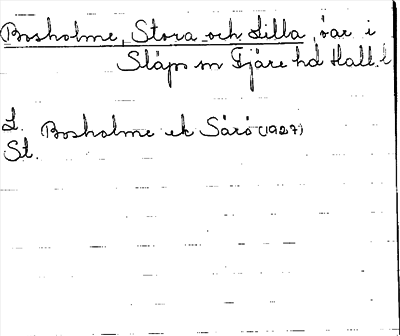 Bosholme, Stora och Lilla, öar i
Släps sn Fjäre hd Hall. l
L. Bosholme ek Särö (1927)
St.